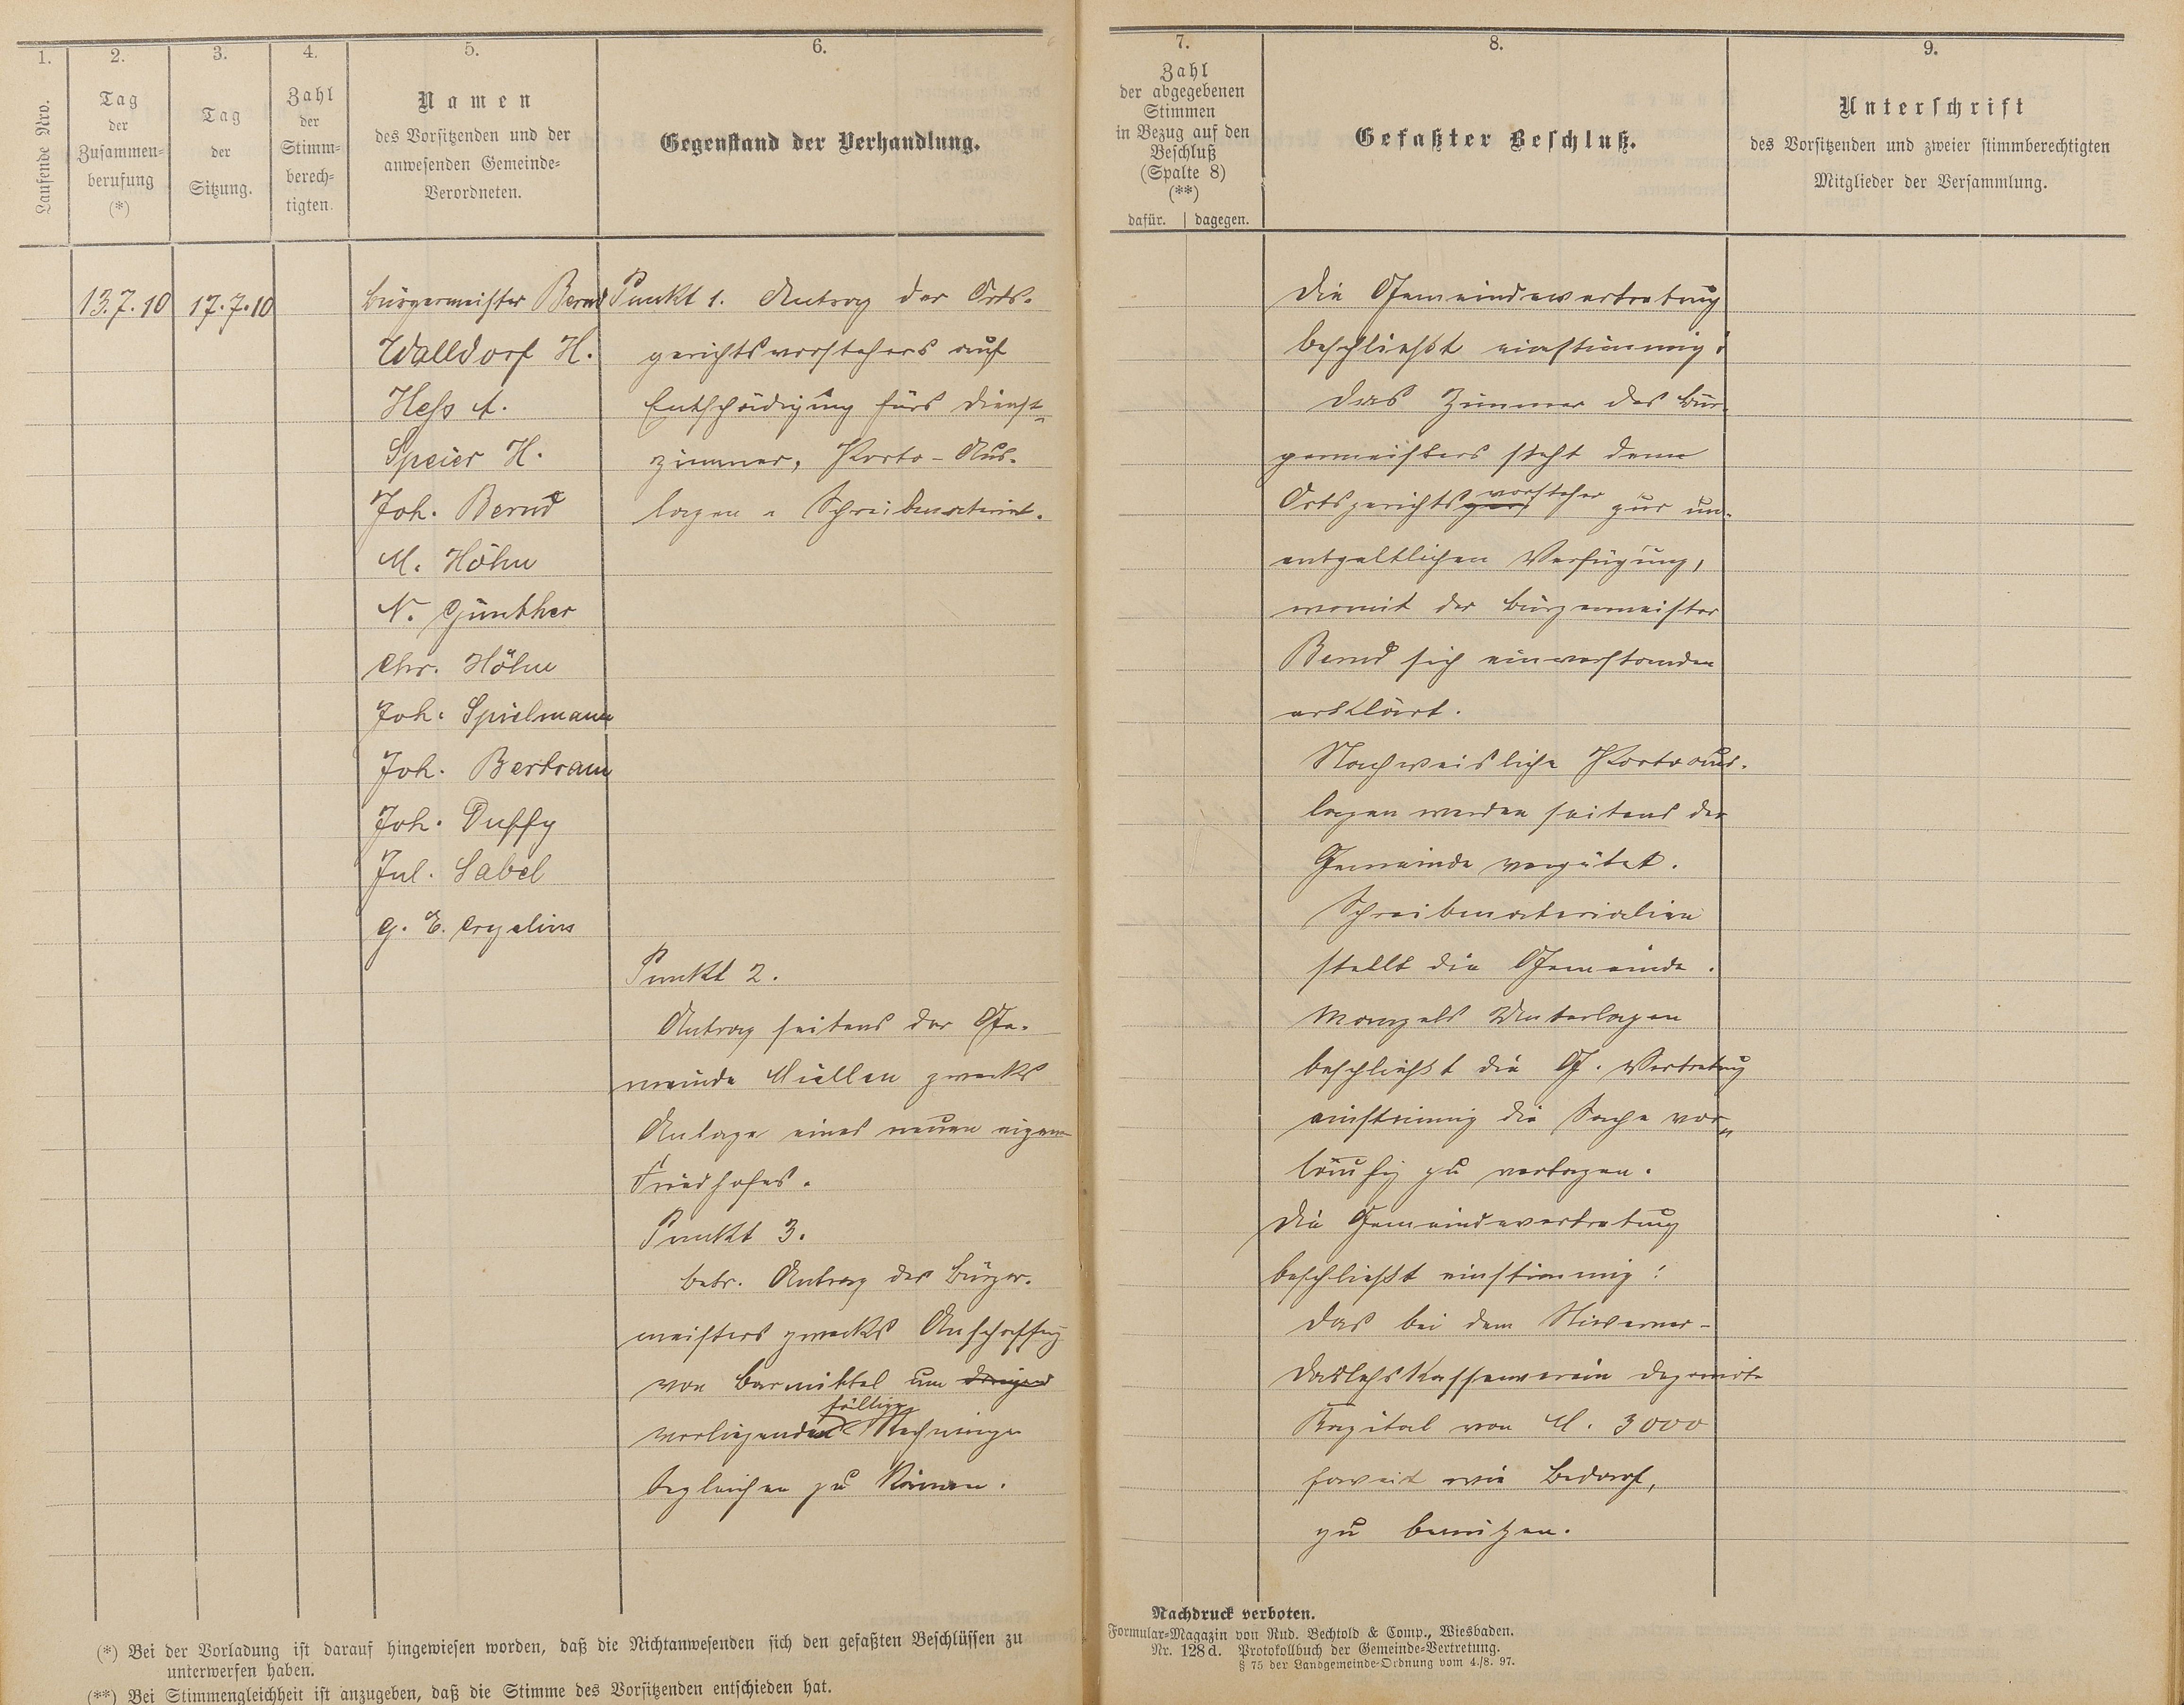 1.
Laufende Nro.
2.
Tag
der
Zusammen-
berufung
(*)
3.
Tag
der
Sitzung.
4.
Zahl
der
Stimm-
berech-
tigten.
5.
Namen
des Vorsitzenden und der
anwesenden Gemeinde-
Verordneten.
6.
Gegenstand der Verhandlung.
7.
Zahl
der abgegebenen
Stimmen
in Bezug auf den
Beschluß
(Spalte 8)
(**)
dafür. | dagegen.
8.
Gefaßter Beschluß.
9.
Unterschrift
des Vorsitzenden und zweier stimmberechtigten
Mitglieder der Versammlung.
13.7.10
17.7.10
Bürgermeister Bernd
Walldorf H.
Heß A.
Speier H.
Joh. Bernd
M. Höhn
N. Günther
Chr. Höhn
Joh. Spielmann
Joh. Bertram
Joh. Duffy
Jul. Sabel
G. E.
Punkt 1. Antrag des Orts-
gerichtsvorstehers auf
Entschädigung fürs Dienst-
zimmer, Porto-Aus-
lagen u. Schreibmaterial.
Punkt 2.
Antrag seitens der Ge-
meinde Miellen zwecks
Anlage eines neuen eigenen
Friedhofes.
Punkt 3.
betr. Antrag des Bürger-
meisters zwecks Anschaffung
von Barmittel um
vorliegende fällige Rechnungen
begleichen zu können.
Die Gemeindevertretung
beschließt einstimmig:
Das Zimmer des Bür-
germeisters steht dem
Ortsgerichtsvorsteher zur un-
entgeltlichen Verfügung,
womit der Bürgermeister
Bernd sich einverstanden
erklärt.
Nachweisliche Portoaus-
lagen werden seitens der
Gemeinde vergütet.
Schreibmaterialien
stellt die Gemeinde.
Mangels Unterlagen
beschließt die G. Vertretung
einstimmig die Sache vor-
läufig zu vertagen.
Die Gemeindevertretung
beschließt einstimmig:
Das bei dem Nieverner-
Darlehskassenverein deponirte
Kapital von M. 3000
soweit wie Bedarf,
zu benutzen.
(*) Bei der Vorladung ist darauf hingewiesen worden, daß die Nichtanwesenden sich den gefaßten Beschlüssen zu
unterwerfen haben.
(**) Bei Stimmengleichheit ist anzugeben, daß die Stimme des Vorsitzenden entschieden hat.
Nachdruck verboten.
Formular-Magazin von Rud. Bechtold & Comp., Wiesbaden.
Nr. 128d. Protokollbuch der Gemeinde-Vertretung.
§ 75 der Landgemeinde-Ordnung vom 4./8. 97.